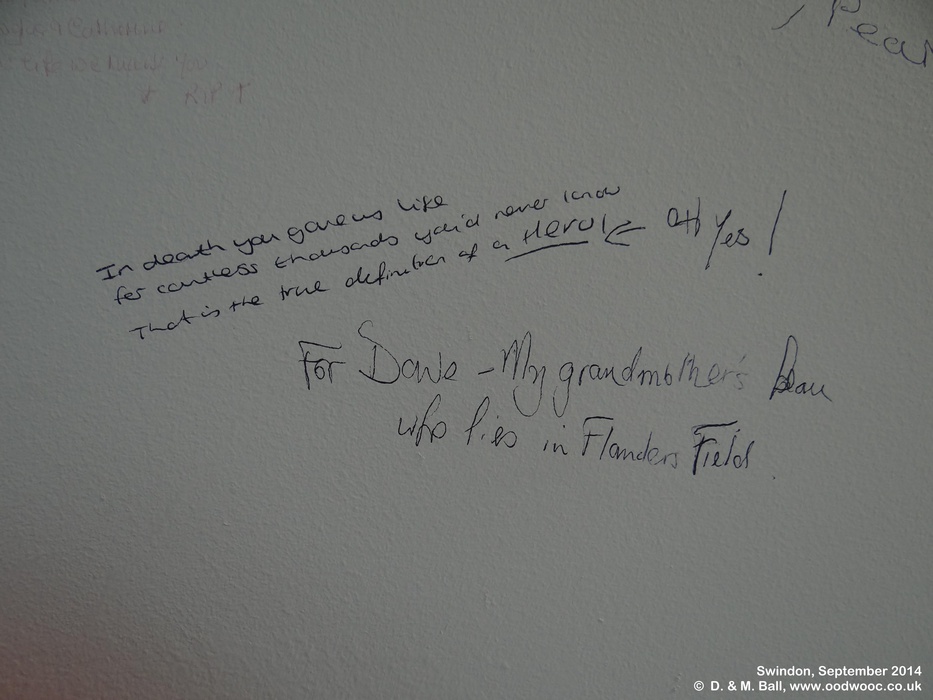 RIP
Pea
In death you gave us life
for countless thousands you'd never know
That is the true definition of a Hero! ← oH Yes!
For Dave - My grandmother's beau
who lies in Flanders Field.
Swindon, September 2014
© D. & M. Ball, www.oodwooc.co.uk